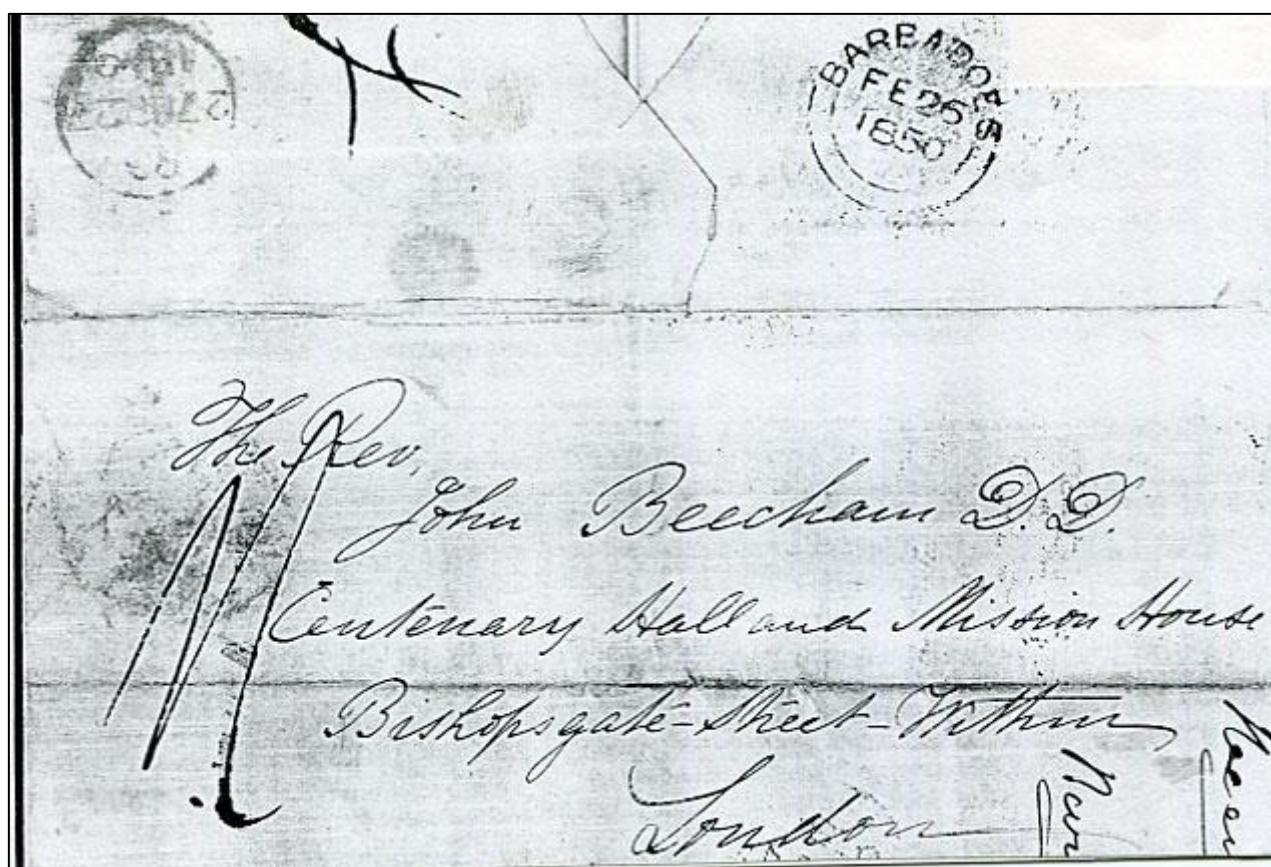 BARBADOES
FE 26
1850
The Rev.
John Beecham D.D.
Centenary Hall and Mission House
Bishopsgate-Street-Within
London